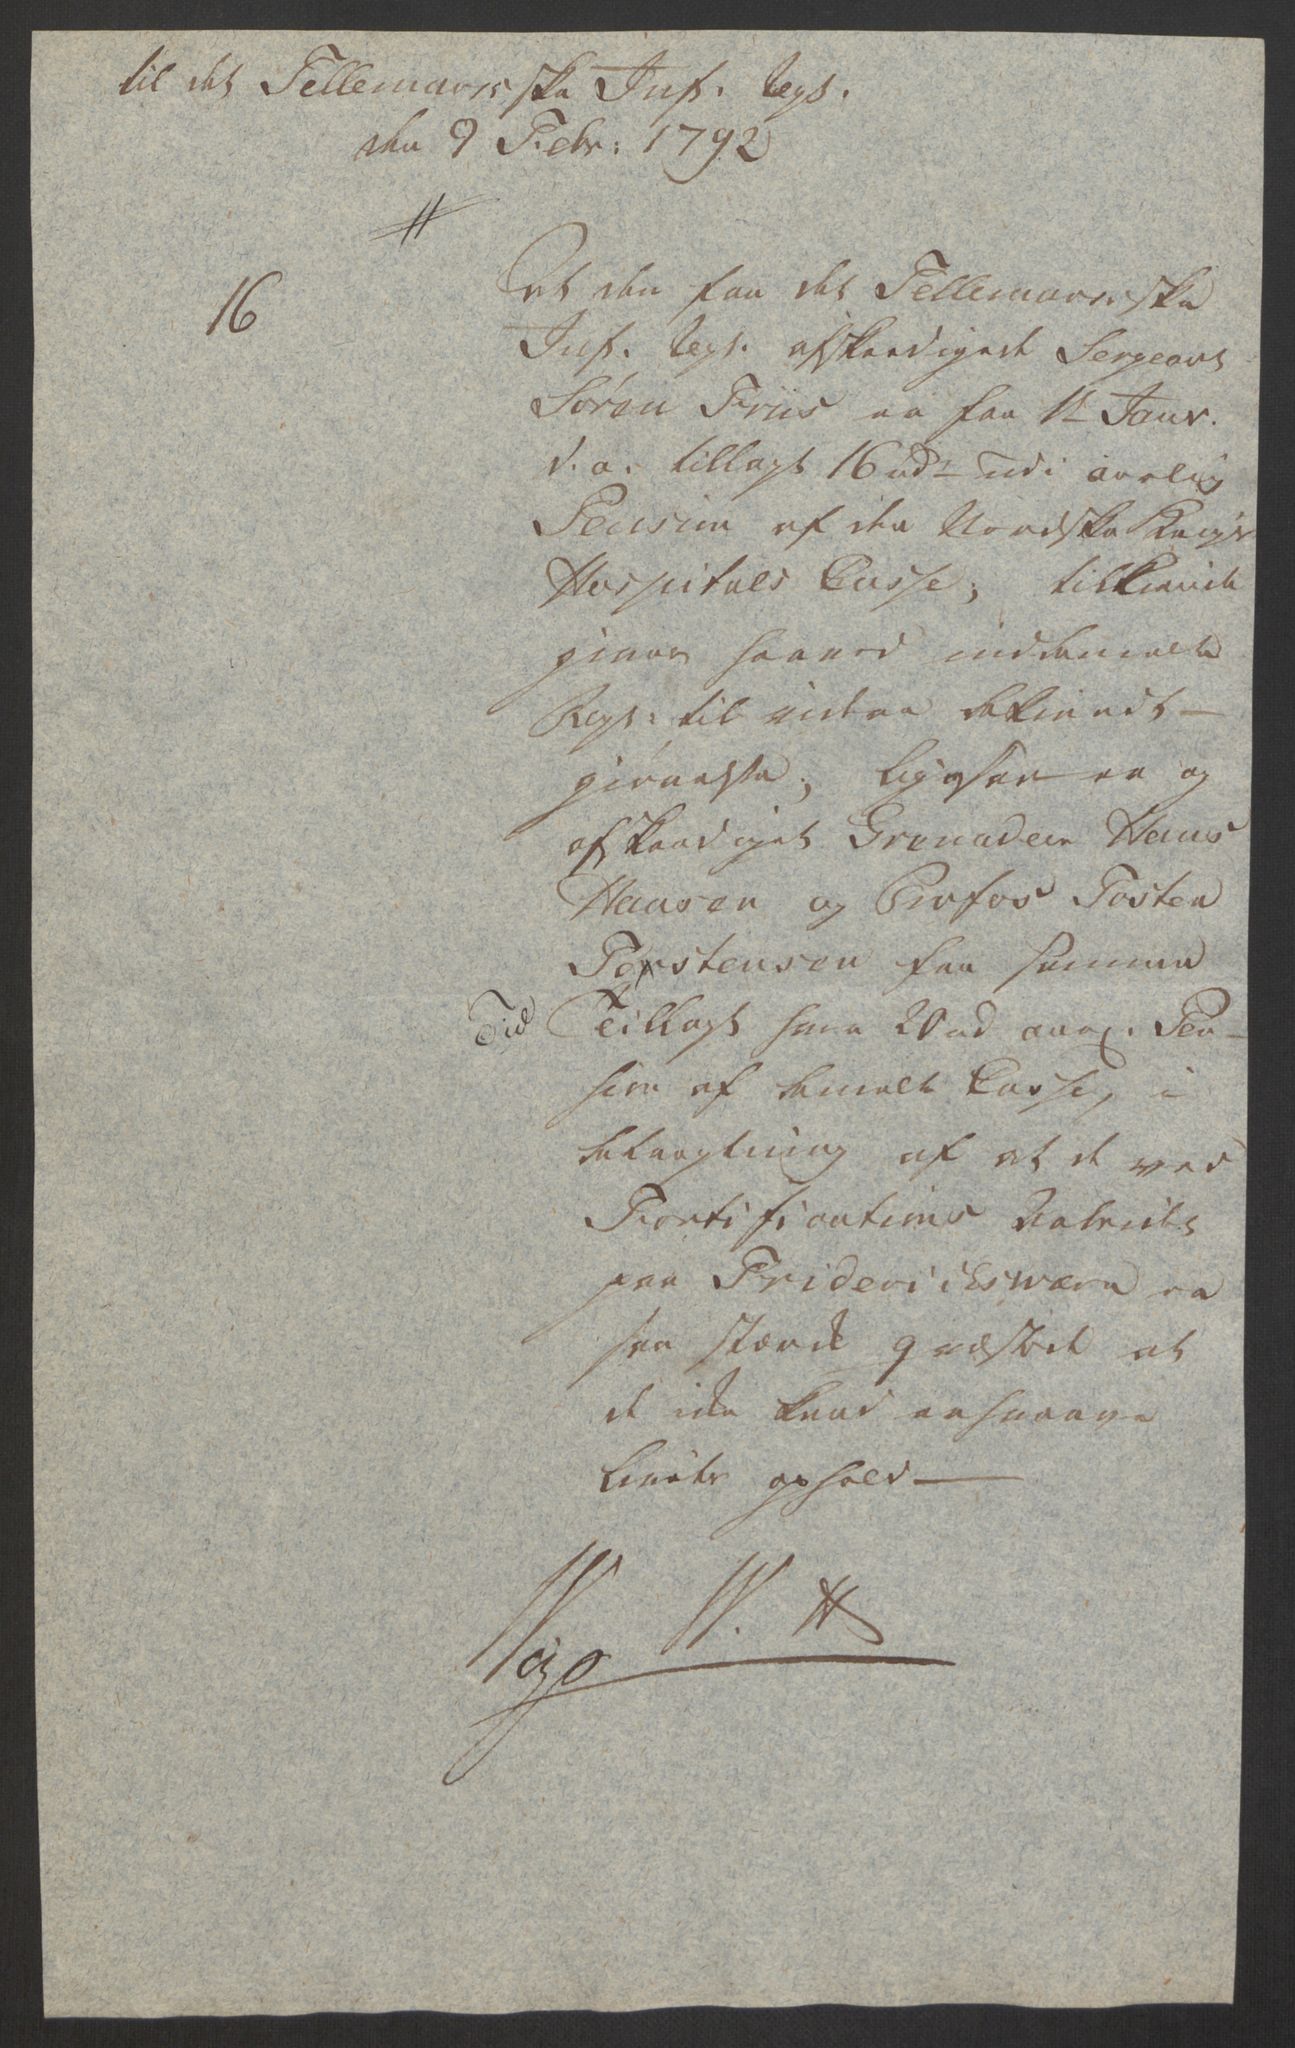 til det Tellemarcske Inf. Regt.
den 9 Febr: 1792
16
At den fra det Tellemarcske
Inf. Regt. afskeedigede Sergeant
Søren Friis er fra 1te Janr.
d. a. tillagt 16 rdr udi aarlig
Pension af den Nordske Krigs
Hospitals Casse, tilkiende
gives herved indbemelte
Regt: til videre bekiendt-
giørelse; ligesom er og
afskeediget Grenadeer Hans
Hansen og Profos Tosten
Torstensen fra samme
Tid Tillagt hver 20 rd aarl. Pen-
sion af bemelte Casse, i
betragtning af at de ved
Fortifications Arbeidet
paa Fridericiksværn er
saa stærk qvæstede at
de ikke kand erhverve
Livets ophold
W. H